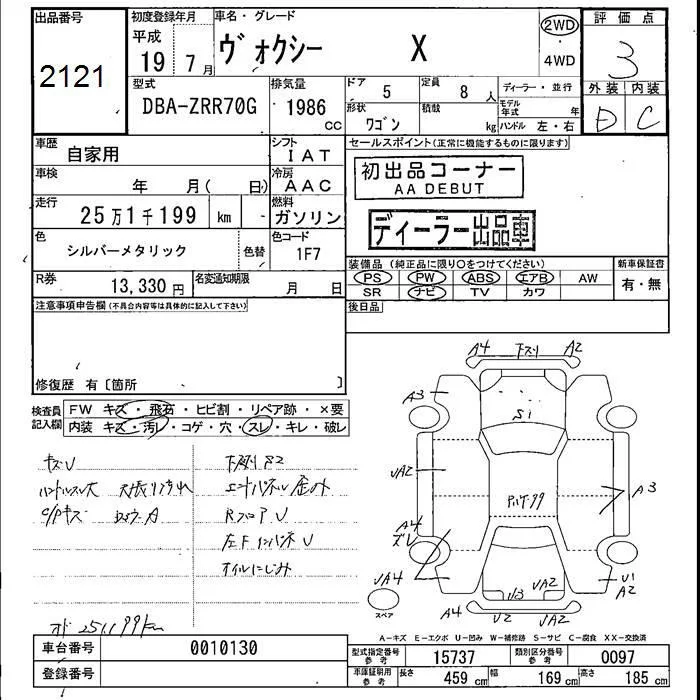 出品番号
2121
初度登録年月
平成
19 7月
車名・グレード
ヴォクシー X
2WD
・
4WD
評価点
3
外装 内装
D C
型式
DBA-ZRR70G
排気量
1986 cc
ドア 5
定員 8 人
形状 ワゴン
積載 kg
ディーラー・並行
モデル年式 年
ハンドル 左・右
車歴
自家用
シフト
IAT
車検
年 月( 日)
冷房
AAC
走行
25万1千199 km -
燃料
ガソリン
色
シルバーメタリック
色替
色コード
1F7
R券
13,330 円
名変通知期限
月 日
セールスポイント(正常に機能するものに限ります)
初出品コーナー
AA DEBUT
ディーラー出品車
装備品(純正品に限り○をつけてください)
PS PW ABS エアB AW
SR ナビ TV カワ
新車保証書
有・無
後日品
注意事項申告欄(不具合内容等は具体的に記入して下さい)
修復歴 有〔箇所 〕
検査員記入欄
FW キズ・飛石・ヒビ割・リペア跡・×要
内装 キズ・汚レ・コゲ・穴・スレ・キレ・破レ
キズU
ハンドルスレ大
C/Pキズ
下廻りS2
RフロアU
左FインパネU
オイルにじみ
オド 251,199km
A4 下スリ A2
A3
S1
UA2
A3
A4
ズレ
UA4
スペア
U3 UA2
U1
A2
A4 U2 UA2
A-キズ E-エクボ U-凹み W-補修跡 S-サビ C-腐食 XX-交換済
車台番号
0010130
登録番号
型式指定番号
参考
15737
類別区分番号
参考
0097
車庫証明用
参考
長さ 459 cm
幅 169 cm
高さ 185 cm